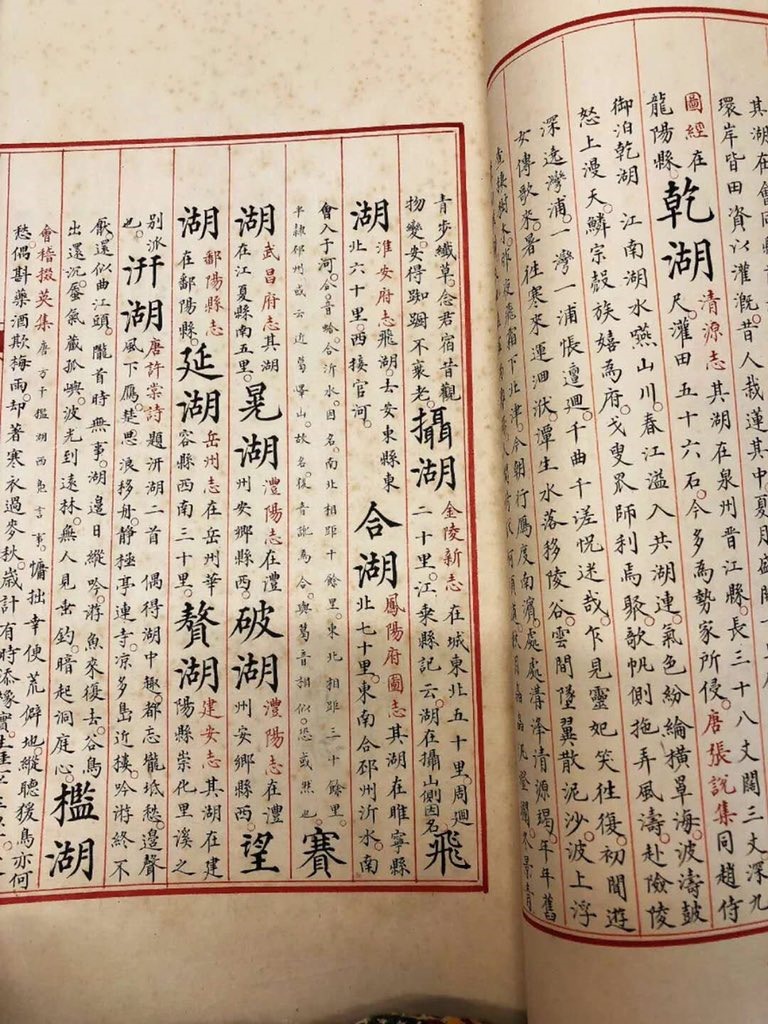 環岸皆田資以灌漑昔人栽蓮其中夏月盛開
圖經在
龍陽縣
乾湖
清源志其湖在泉州晉江縣長三十八丈闊三丈深九
尺灌田五十六石今多為勢家所侵唐張說集同趙侍
御泊乾湖 江南湖水嚥山川春江溢入共湖連氣色紛綸橫罩海波濤鼓
怒上漫天鱗宗殼族嬉為府弋叟罛師利焉聚歌帆側拖弄風濤赴險陵
深遠灣浦一灣一浦悵邅迴千曲千溠怳迷哉乍見靈妃笑往復初聞遊
女傳歌來暑往寒來運洄洑潭生水落移陵谷雲間墜翼散泥沙波上浮
查棲樹木昨夜飛霜下北津今朝行鴈度南濱處處溝澤清源竭年年舊
青步纖草念君宿昔觀
物變安得踟蹰不衰老
攝湖
金陵新志在城東北五十里周迴
二十里江乘縣記云湖在攝山側因名
飛
湖
淮安府志飛湖去安東縣東
北六十里西接官河
合湖
鳳陽府圖志其湖在睢寧縣
北七十里東南合邳州沂水南
會入于河合音蛤合沂水因名南北相距十餘里東北相距三十餘里
半隸邳州或云近葛嶧山故名後音訛為合與葛音相似恐或然也
賽
湖
武昌府志其湖
在江夏縣南五里
晃湖
澧陽志在澧
州安鄉縣西
破湖
澧陽志在澧
州安鄉縣西
望
湖
鄱陽縣志
在鄱陽縣
延湖
岳州志在岳州華
容縣西南三十里
贅湖
建安志其湖在建
陽縣崇化里溪之
別派
也
汧湖
唐許棠詩題汧湖二首 偶得湖中趣都忘壠坻愁邊聲
風下鴈楚思浪移舟靜極亭連寺涼多島近樓吟游終不
厭還似曲江頭 隴首時無事湖邊日縱吟游魚來復去谷鳥
出還沉蜃氣藏孤嶼波光到遠林無人見垂釣暗起洞庭心
檻湖
會稽掇英集唐方干檻湖西島言事 慵拙幸便荒僻地縱聽猨鳥亦何
愁偶斟藥酒欺梅雨却著寒衣過麥秋歲計有時添橡實生涯